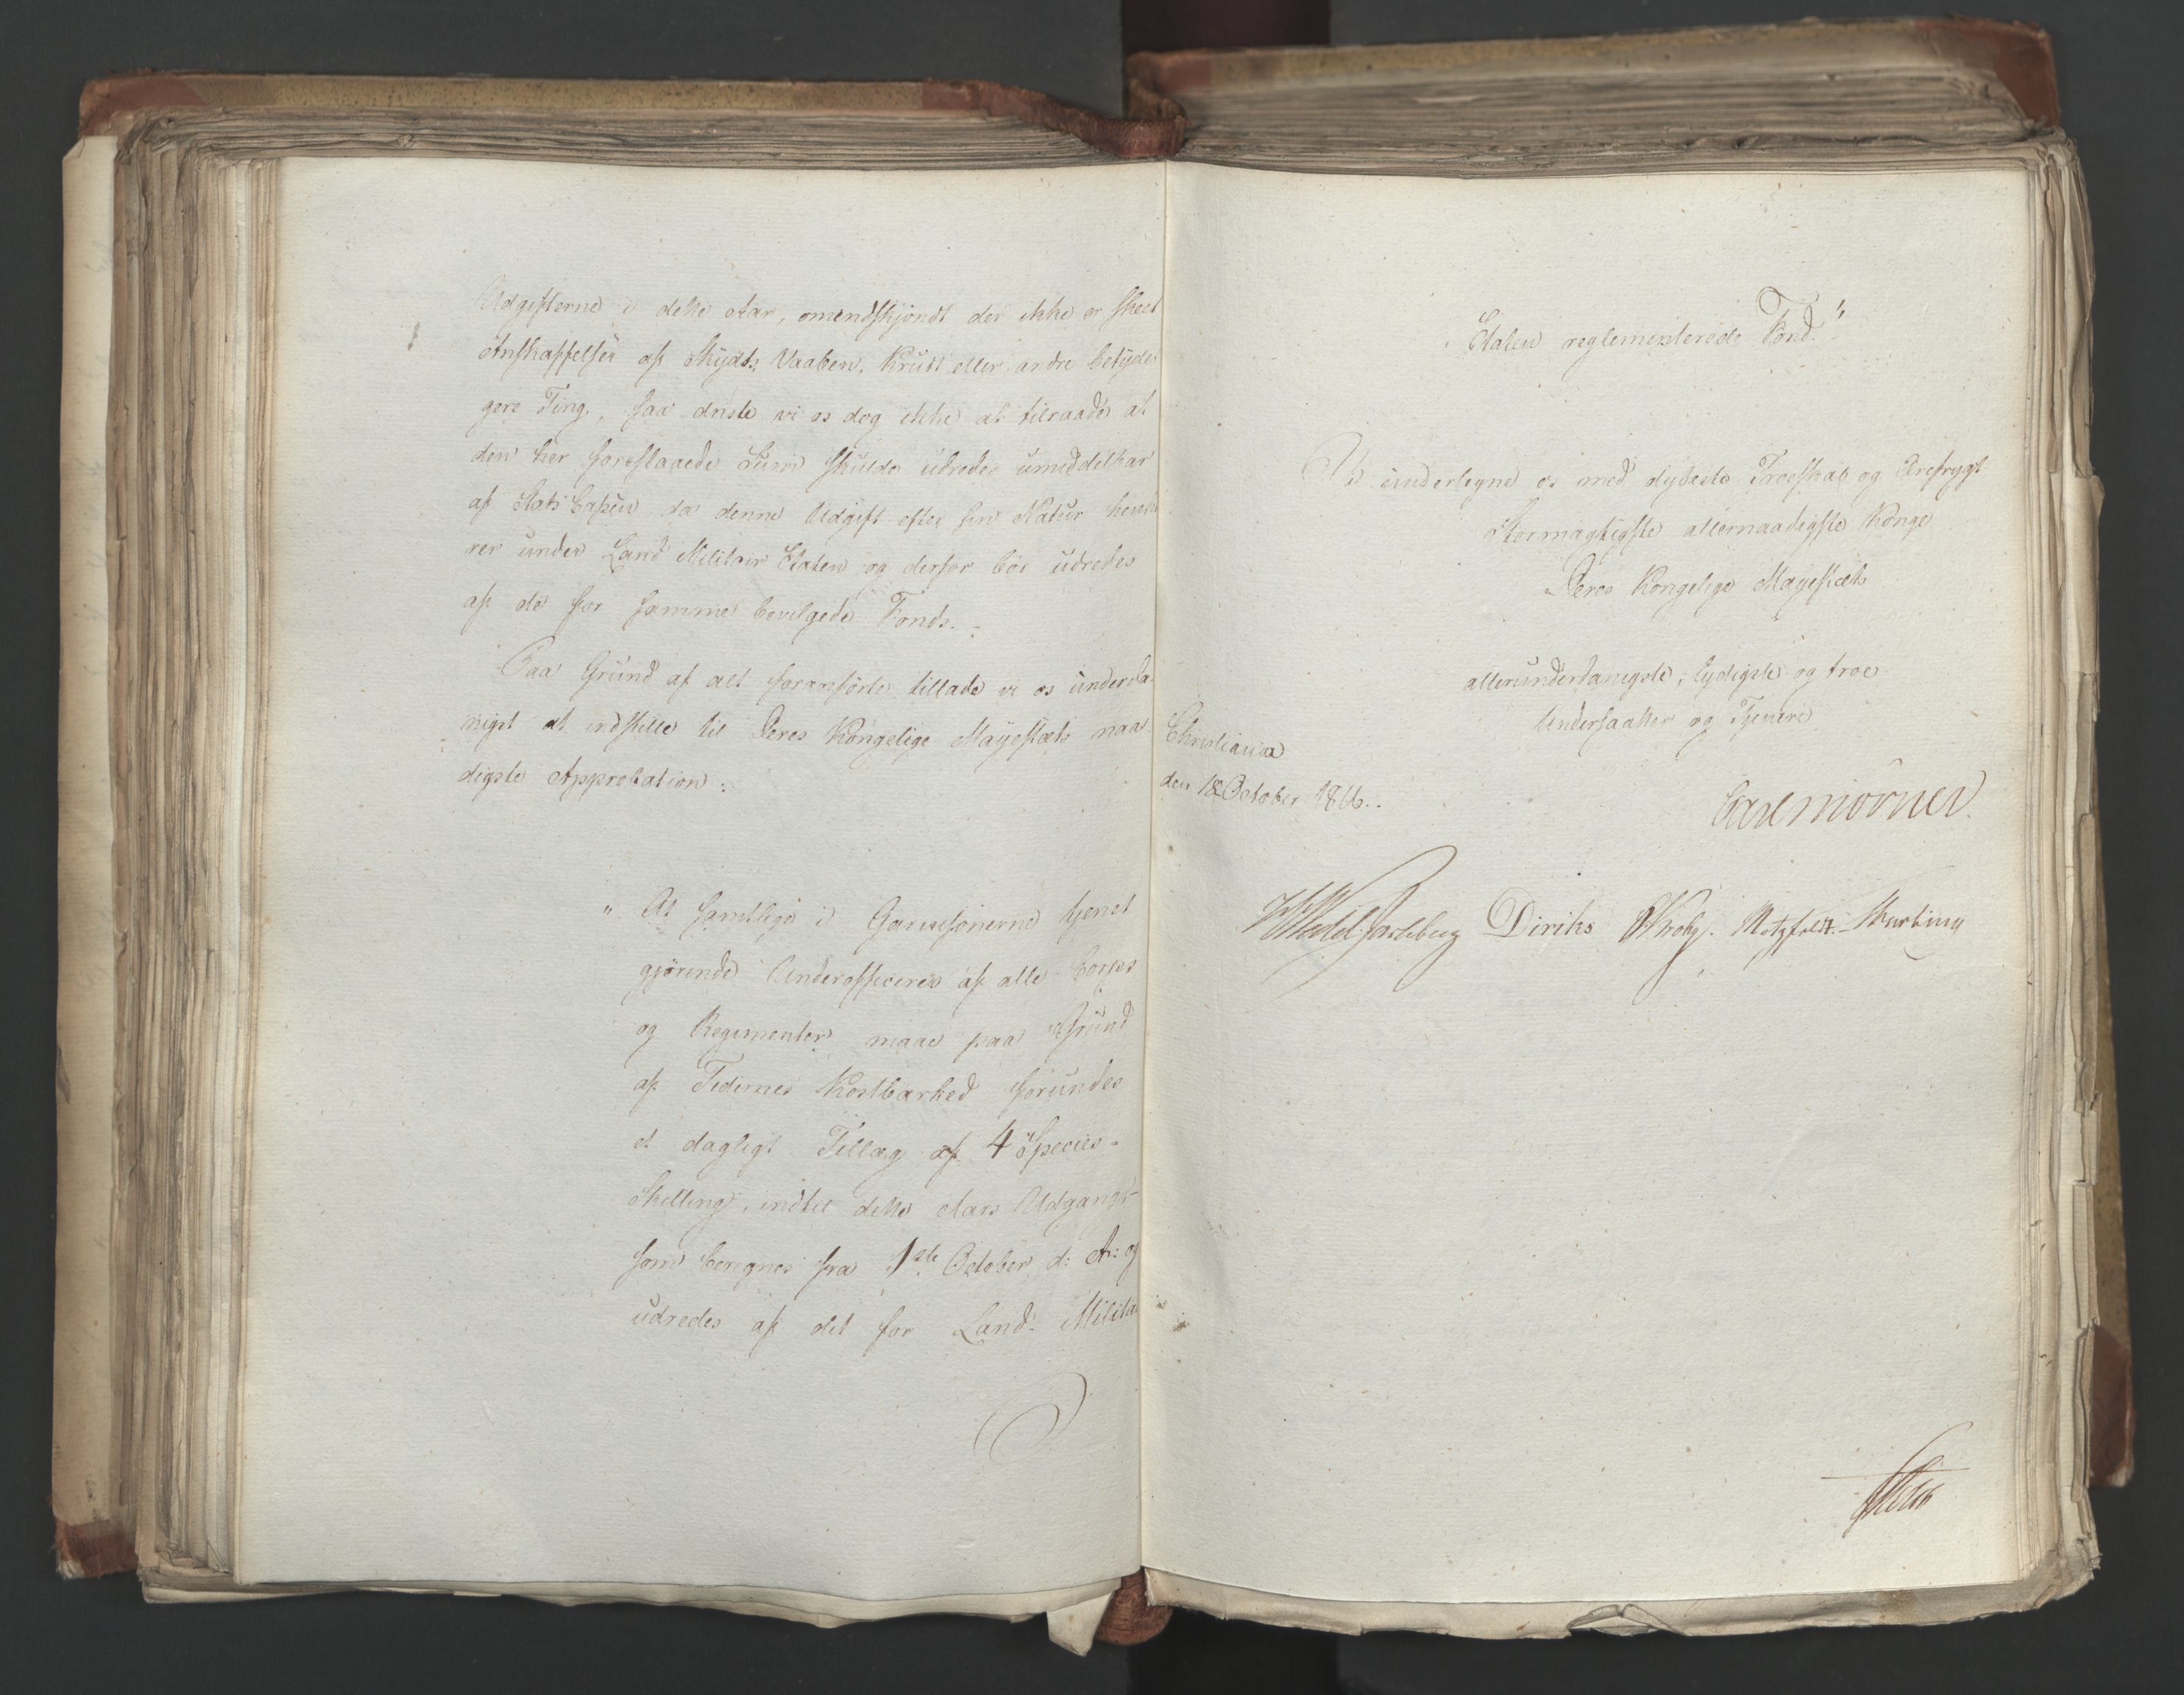 Udgifterne i dette Aar, omendskjöndt der ikke er skeet
Anskaffelser af Skyds, Vaaben, Krudt eller andre betyde
gere Ting, saa driste vi os dog ikke at tilraade at
den her foreslaaede Sum skulde udredes umiddelbar
af Stats Cassen da denne Udgift efter sin Natur henhö
rer under Land Militair Etaten og derfor bör udredes
af de for samme bevilgede Fonds. –
Paa Grund af alt foranförte tillade vi os underda-
nigst at indstille til Deres Kongelige Mayestæts naa-
digste Approbation:
" At samtlige i Garnisonerne tjenst
gjörende Underofficerer af alle Corps
og Regimenter maae paa Grund
af Tidernes Kostbarhed forundes
et dagligt Tillæg af 4 Species-
Skilling, indtil dette Aars Udgang,
som beregnes fra 1ste October d: A: og
udredes af det for Land- Milita
Etaten reglementerede Fond."
Vi underlegne os med dybeste Troeskab og Ærefrygt
Stormægtigste allernaadigste Konge
Deres Kongelige Mayestæts
allerunderdanigste, lydigste og troe
Undersaatter og Tjenere
Christiania
den 18 October 1816.
Carl Mörner.
HWedel Jarlsberg Diriks Krohg. Motzfeldt.